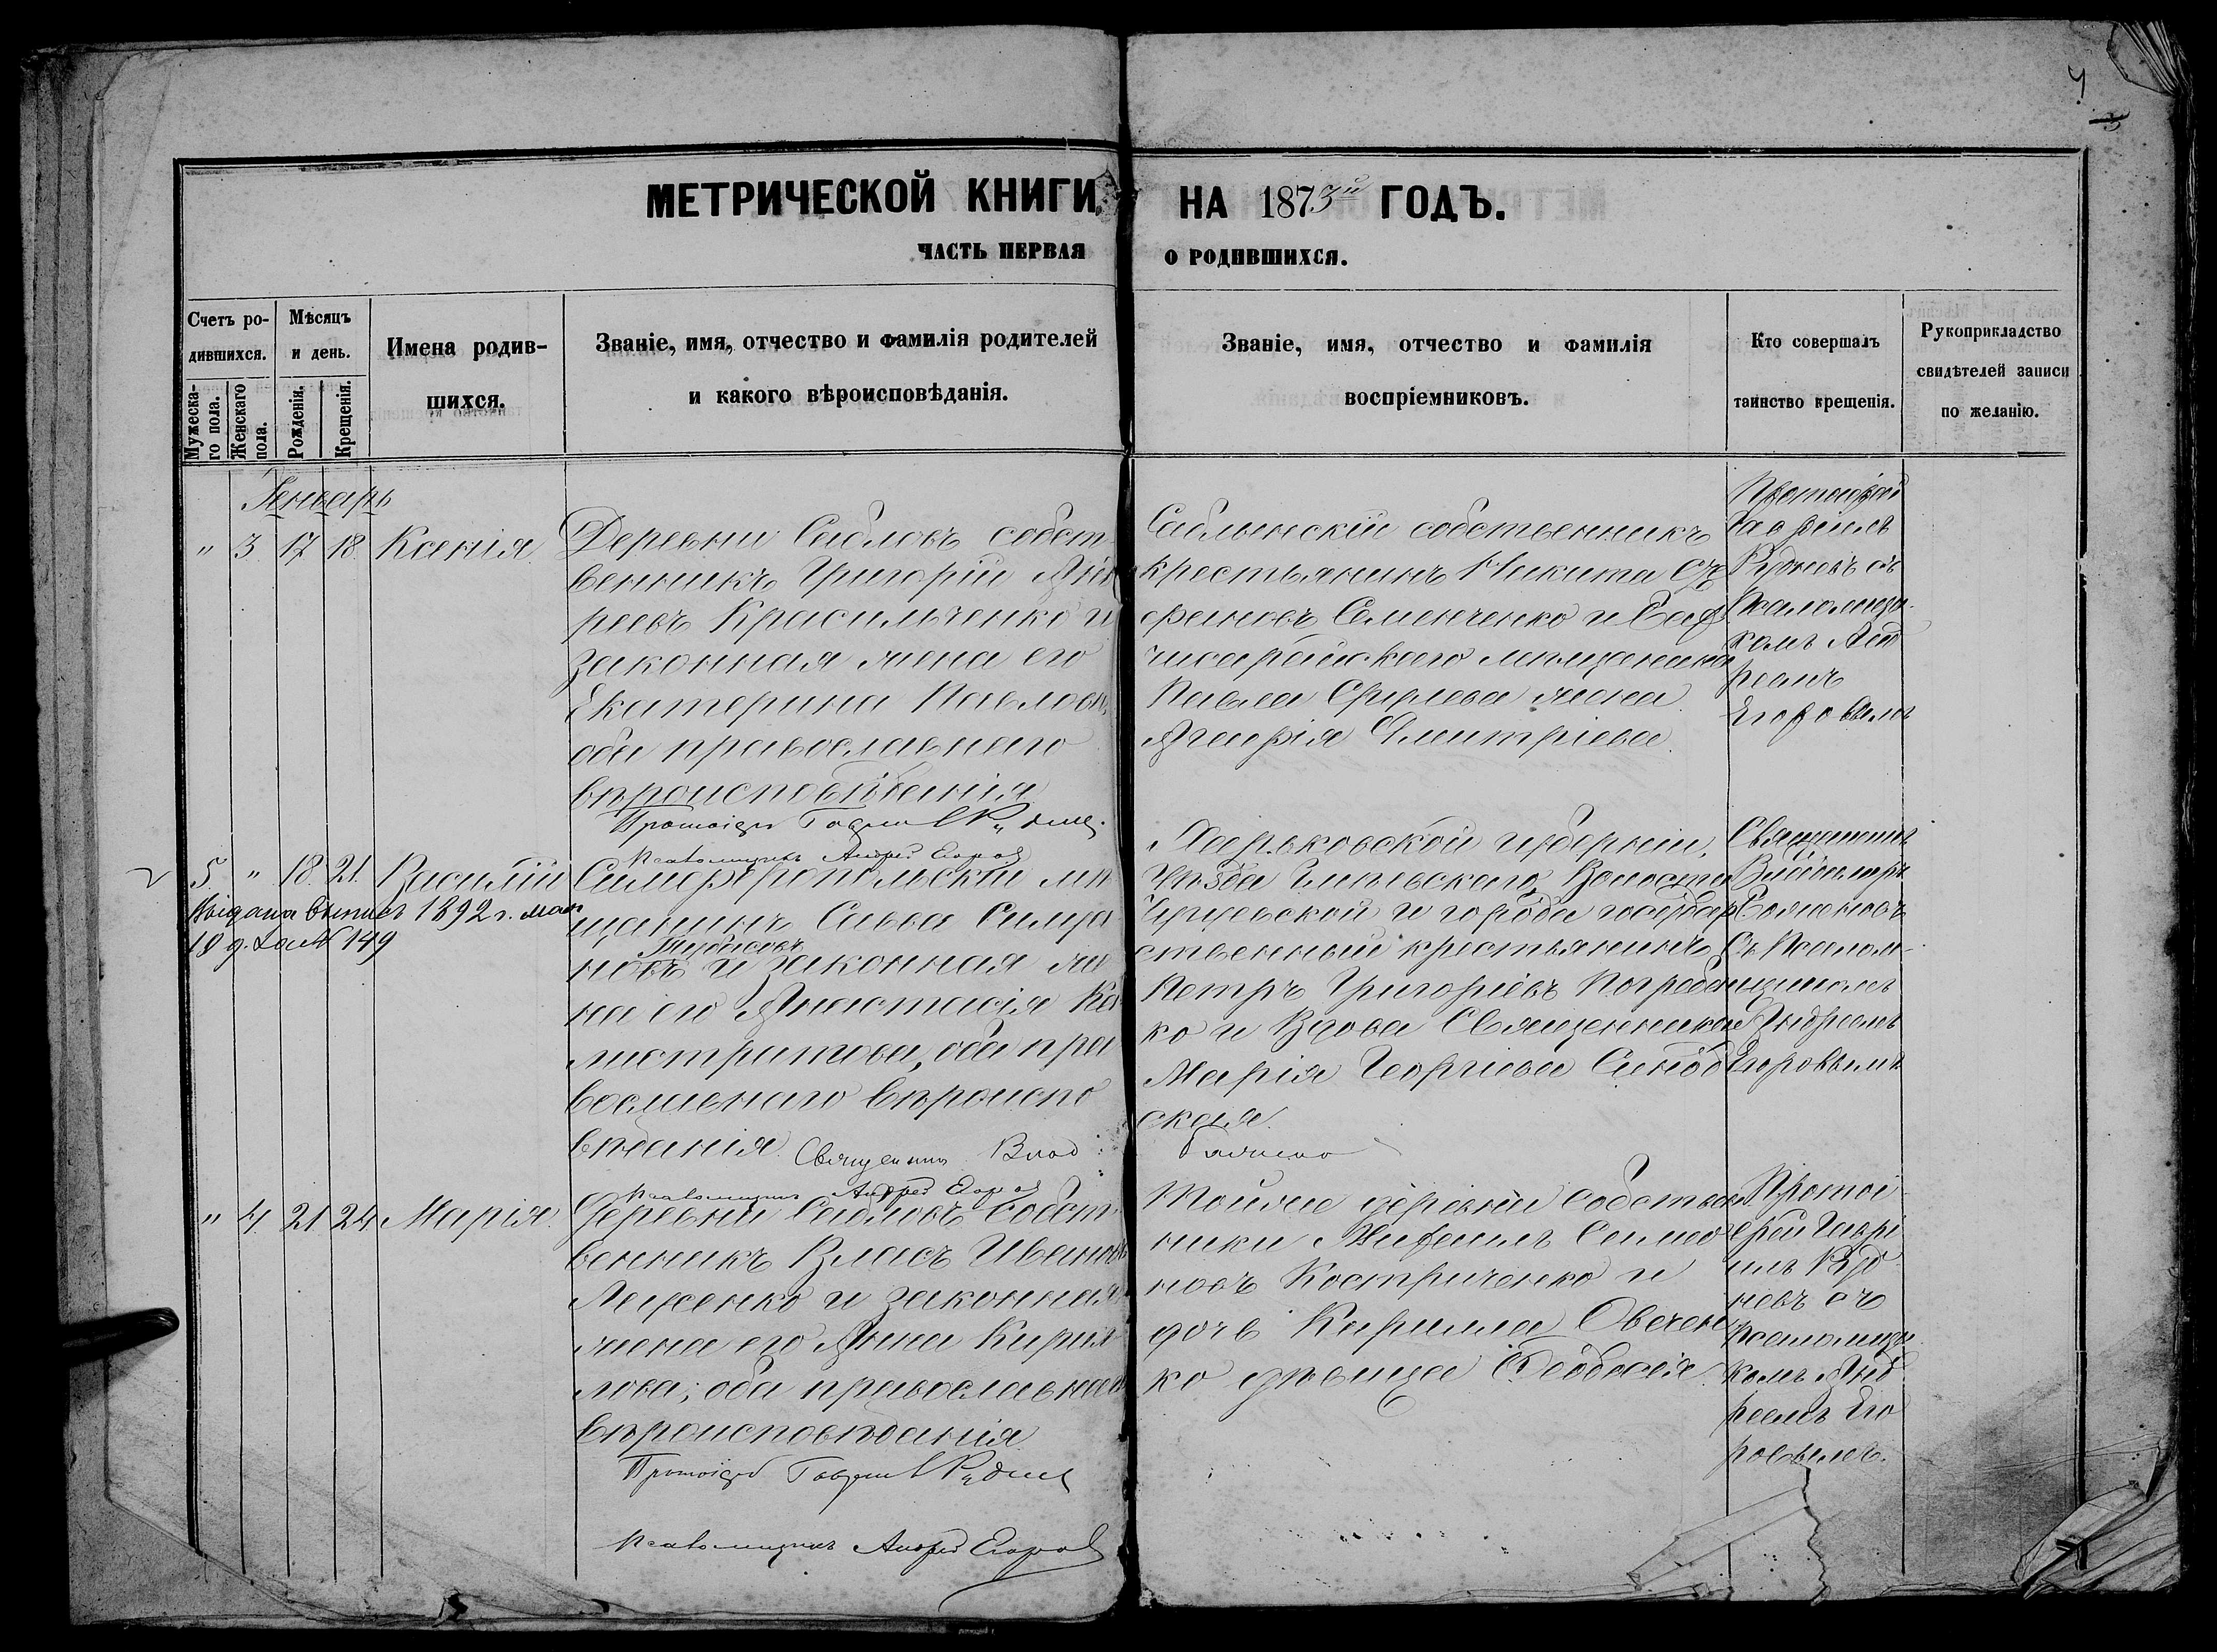 4
МЕТРИЧЕСКОЙ КНИГИ НА 1873й ГОДЪ.
ЧАСТЬ ПЕРВАЯ О РОДИВШИХСЯ.
Счетъ ро-
дившихся.
Мужеска-
го пола.
Женскаго
пола.
Мѣсяцъ
и день.
Рожденія.
Крещенія.
Имена родив-
шихся.
Званіе, имя, отчество и фамилія родителей
и какого вѣроисповѣданія.
Званіе, имя, отчество и фамилія
воспріемниковъ.
Кто совершалъ
таинство крещенія.
Рукоприкладство
свидѣтелей записи
по желанію.
Генварь
" 3. 17 18. Ксенія.
Деревни Сабловъ собст
венникъ Григорій Анд
реевъ Красильченко и
законная жена его
Екатерина Павлов
оба православнаго
вѣроисповѣданія
Протоіер Гавріил Руднев
Псаломщикъ Андрей Егоров
Саблынскій собственникъ
крестьянинъ Никита
Семенченко и
мѣщанина
Павла жена
Дмитріева.
Протоіерей
Гавріилъ
Рудневъ съ
Псаломщи-
комъ Анд
реемъ
Егоровымъ
5. " 18. 21. Василій
Выдана выпись 1892 г. мая
19 д. за № 149
Симферопольскій мѣ
щанинъ Савва Симо
новъ и законная же
на его Анастасія Ка
листратова, оба пра
вославнаго вѣроиспо
вѣданія. Священник Влад
Псаломщикъ Андрей Егоров
Харьковской губерніи,
Уѣзда Волости
и государ
ственный крестьянинъ
Петръ Григорьевъ Погребен
ко и Вдова Священника
Марія Георгіева
ская.
Священникъ
Владиміръ
съ Псалом-
щикомъ
Андреемъ
Егоровымъ
" 4. 21. 24. Марія.
Деревни Сабловъ собст
венникъ Власъ Иванов
и законная
жена его Анна Кирил
лова; оба православнаго
вѣроисповѣданія
Протоіерей Гавріил Руднев
Псаломщикъ Андрей Егоров
Той же деревни собствен
ники
новъ Костриченко и
дочь Кирилла Овечен
ко дѣвица Феодосія.
Протоі
ерей Гаврі
илъ Руд
невъ съ
Псаломщи
комъ Анд
реемъ Его
ровымъ.